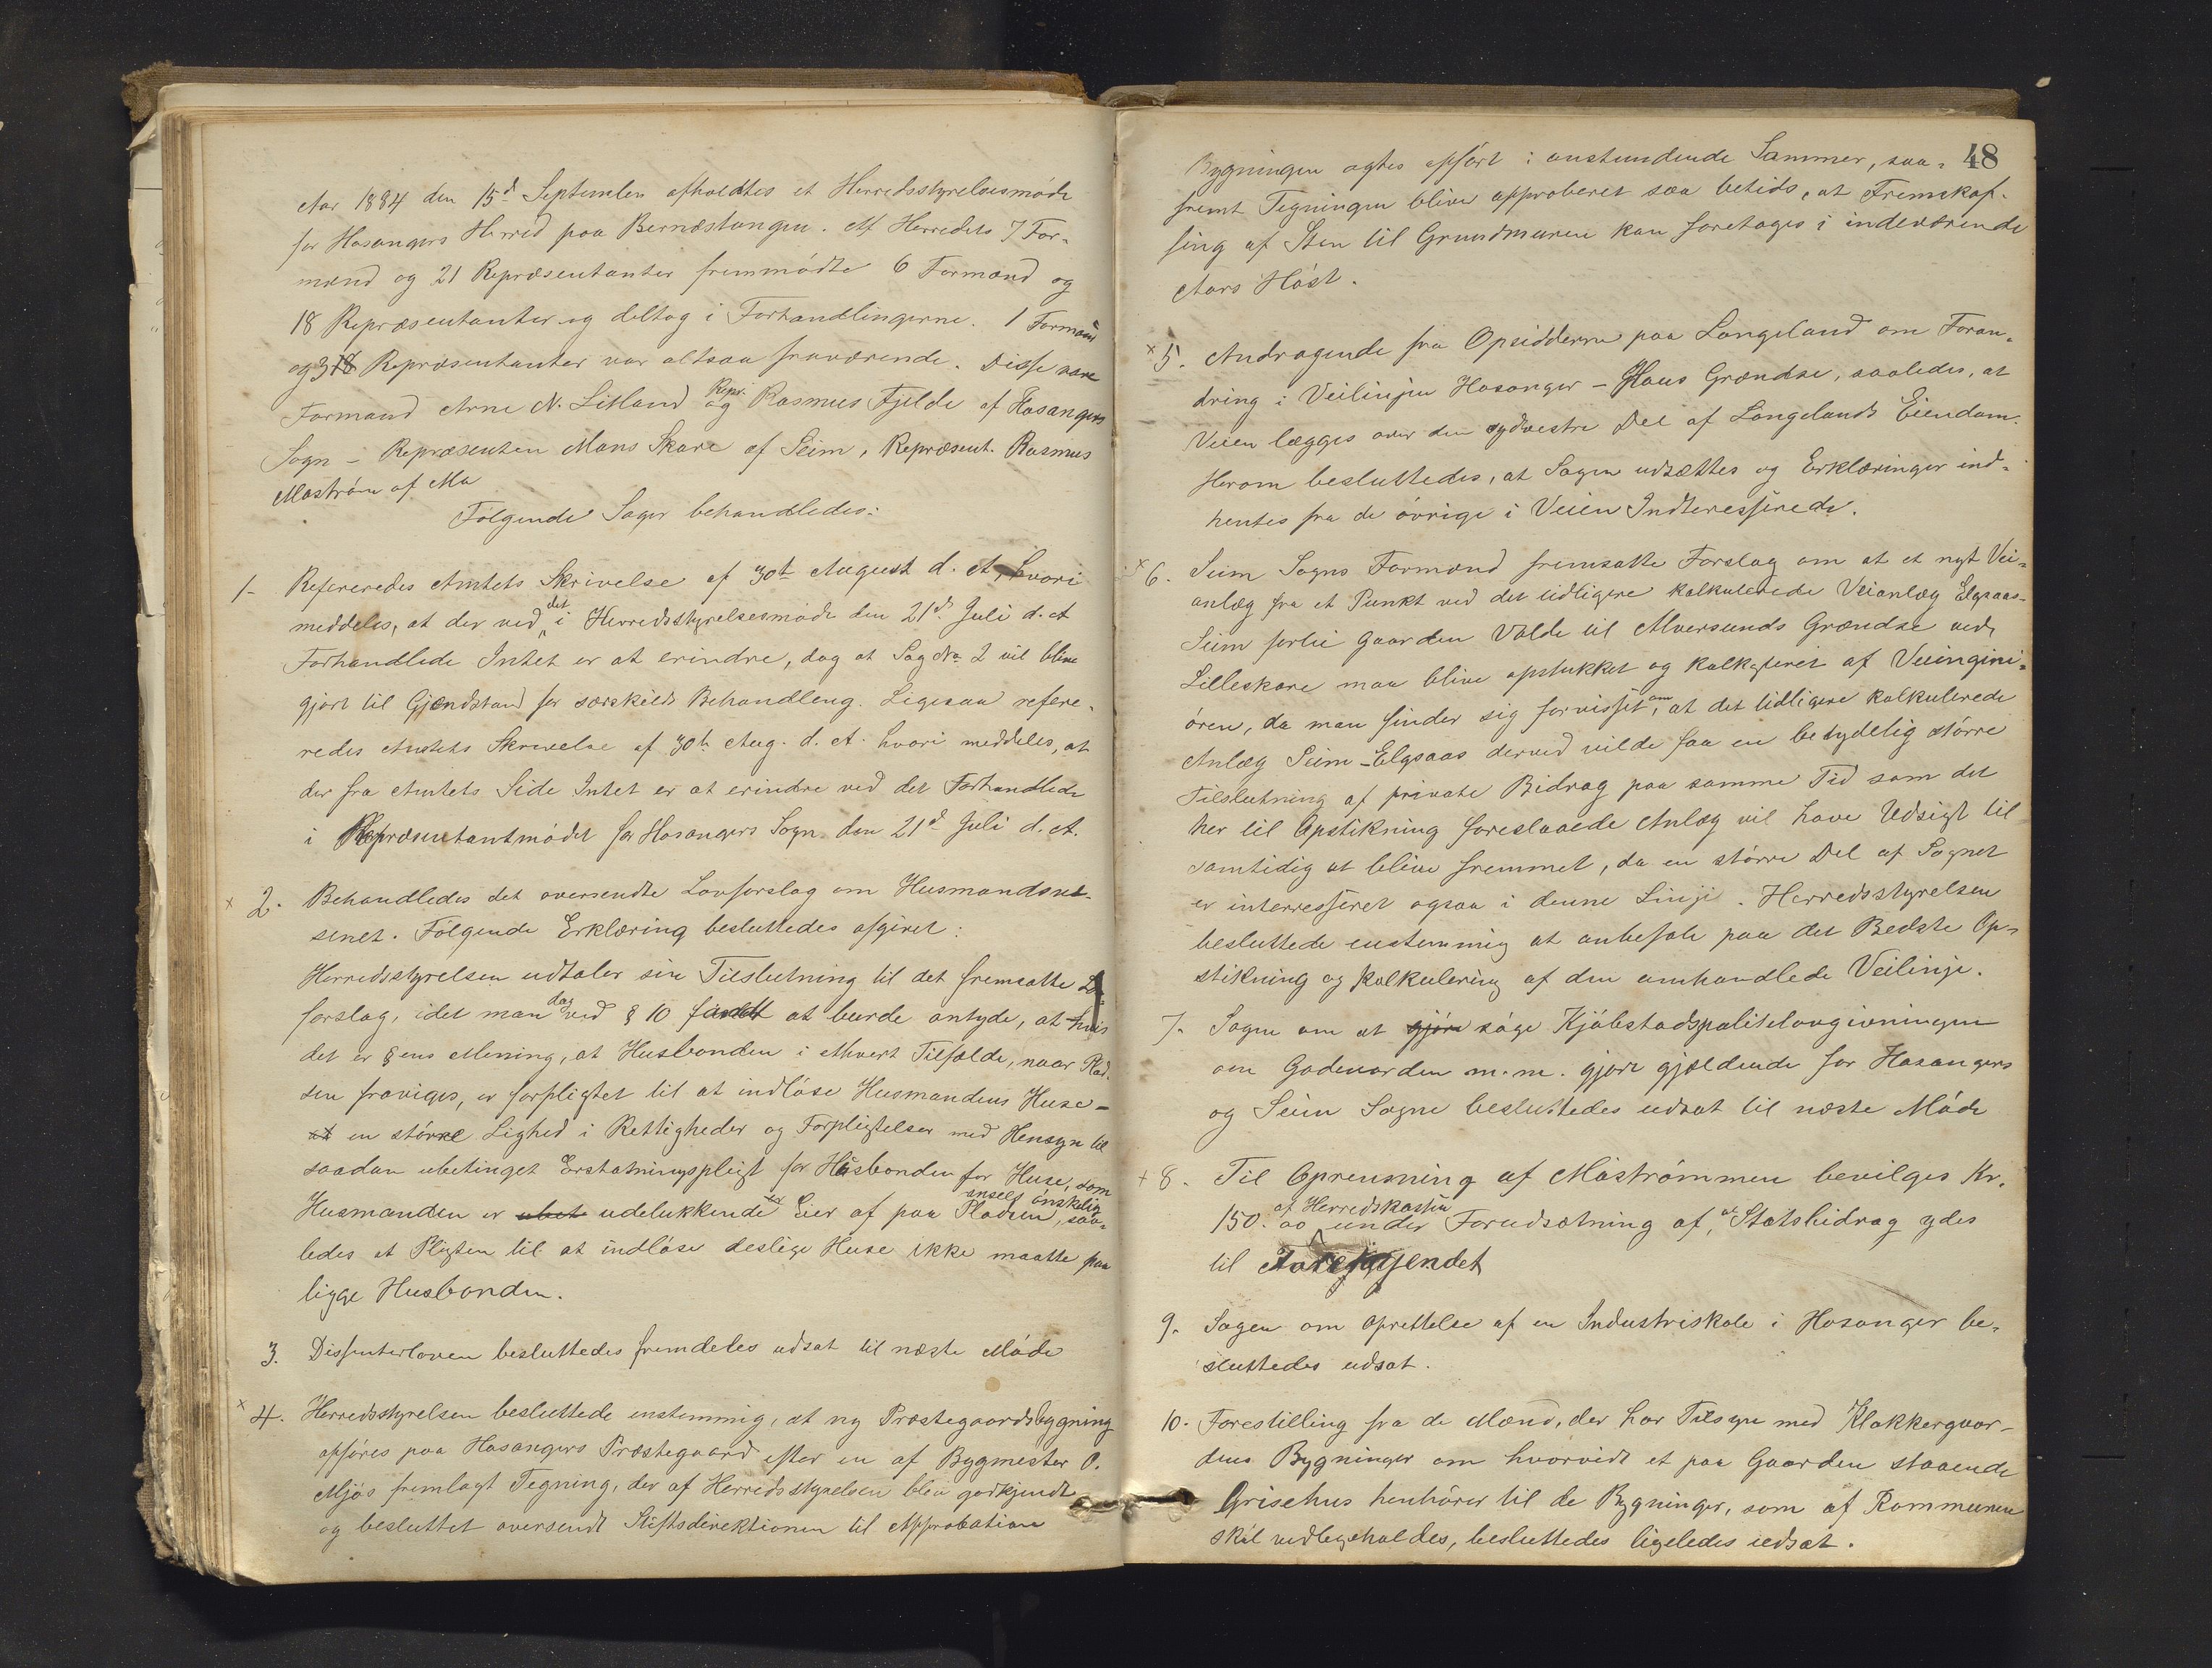 Aar 1884 den 15d September afholdtes et Herredsstyrelsesmøde
for Hosangers Herred paa Bernæstangen. Af Herredets 7 For-
mænd og 21 Repræsentanter fremmødte 6 Formænd og
18 Repræsentanter og deltog i Forhandlingerne. 1 Formand
og 3 18 Repræsentanter var altsaa fraværende. Disse vare
Formand Arne N. Litland og Repr. Rasmus Fjelde af Hosangers
Sogn – Repræsenten Mons Skare af Seim, Repræsent. Rasmus
Mostrøm af Mo
Følgende Sager behandledes:
1- Refereredes Amtets Skrivelse af 30te August d. A. hvori
meddeles, at der ved det i Herredsstyrelsesmøde den 21de Juli d. A
Forhandlede Intet er at erindre, dog at Sag No 2 vil blive
gjort til Gjendstand for særskildt Behandleng. Ligesaa refere-
redes Amtets Skrivelse af 30te Aug. d. A. hvori meddeles, at
der fra Amtets Side Intet er at erindre ved det Forhandlede
i Repræsentantmødet for Hosangers Sogn den 21d Juli d. A.
x 2. Behandledes det oversendte Lovforslag om Husmandsvæ-
senet. Følgende Erklæring besluttedes afgivet:
Herredsstyrelsen udtaler sin Tilslutning til det fremsatte Lov-
forslag, idet man dog ved § 10 fandt at burde antyde, at hvis
det er §ens Mening, at Husbonden i ethvert Tilfælde, naar Plad-
sen fraviges, er forpligtet til at indløse Husmandens Huse –
at en større Lighed i Rettigheder og Forpligtelser med Hensyn til
saadan ubetinget Erstatningspligt for Husbonden for Huse, som
Husmanden er ubet udelukkende Eier af paa Pladsen, ansees ønskelig, saa-
ledes at Pligten til at indløse deslige Huse ikke maatte paa
ligge Husbonden.
3. Dissenterloven besluttedes fremdeles udsat til næste Møde
x 4. Herredsstyrelsen besluttede enstemmig, at ny Præstegaardsbygning
opføres paa Hosangers Præstegaard efter en af Bygmester O.
Mjøs fremlagt Tegning, der af Herredsstyrelsen blev godkjendt
og besluttet oversendt Stiftsdirektionen til Approbation
48
Bygningen agtes opført i anstundende Sommer, saa-
fremt Tegningen bliver approberet saa betids, at Fremskaf-
fing af Sten til Grundmuren kan foretages i indeværende
Aars Høst.
x 5. Andragende fra Opsidderne paa Langeland om Foran-
dring i Veilinjen Hosanger – Haus Grændse, saaledes, at
Veien lægges over den sydvestre Del af Langelands Eiendom.
Herom besluttedes, at Sagen udsættes og Erklæringer ind-
hentes fra de øvrige i Veien Indteresserede.
x 6. Seim Sogns Formænd fremsatte Forslag om at et nyt Vei-
anlæg fra et Punkt ved det tidligere kalkulerede Veianlæg Elgsaas-
Seim forbi Gaarden Volde til Alversunds Grændse ved
Lilleskare maa blive opstukket og kalkuleret af Veiingini-
øren, da man finder sig forvisset om, at det tidligere kalkulerede
Anlæg Seim – Elgsaas derved vilde faa en betydelig større
Tilslutning af private Bidrag paa samme Tid som det
her til Opstikning foreslaaede Anlæg vil have Udsigt til
samtidig at blive fremmet, da en større Del af Sognet
er interresseret ogsaa i denne Linje. Herredsstyrelsen
besluttede enstemmig at anbefale paa det Bedste Op-
stikning og Kalkulering af den omhandlede Veilinje.
7. Sagen om at gjøre søge Kjøbstadspolitilovgivningen
om Godeuorden m.m. gjort gjældende for Hosangers
og Seim Sogne besluttedes udsat til næste Møde
+ 8. Til Oprensning af Mostrømmen bevilges Kr.
150.00 af Herredskassen under Forudsætning af, at Statsbidrag ydes
til Foretagendet
9. Sagen om Oprettelse af en Industriskole i Hosanger be-
sluttedes udsat.
10. Forestilling fra de Mænd, der har Tilsyn med Klokkergaar-
dens Bygninger om hvorvidt et paa Gaarden staaende
Grisehus henhører til de Bygninger, som af Kommunen
skal vedligeholdes, besluttedes ligeledes udsat.